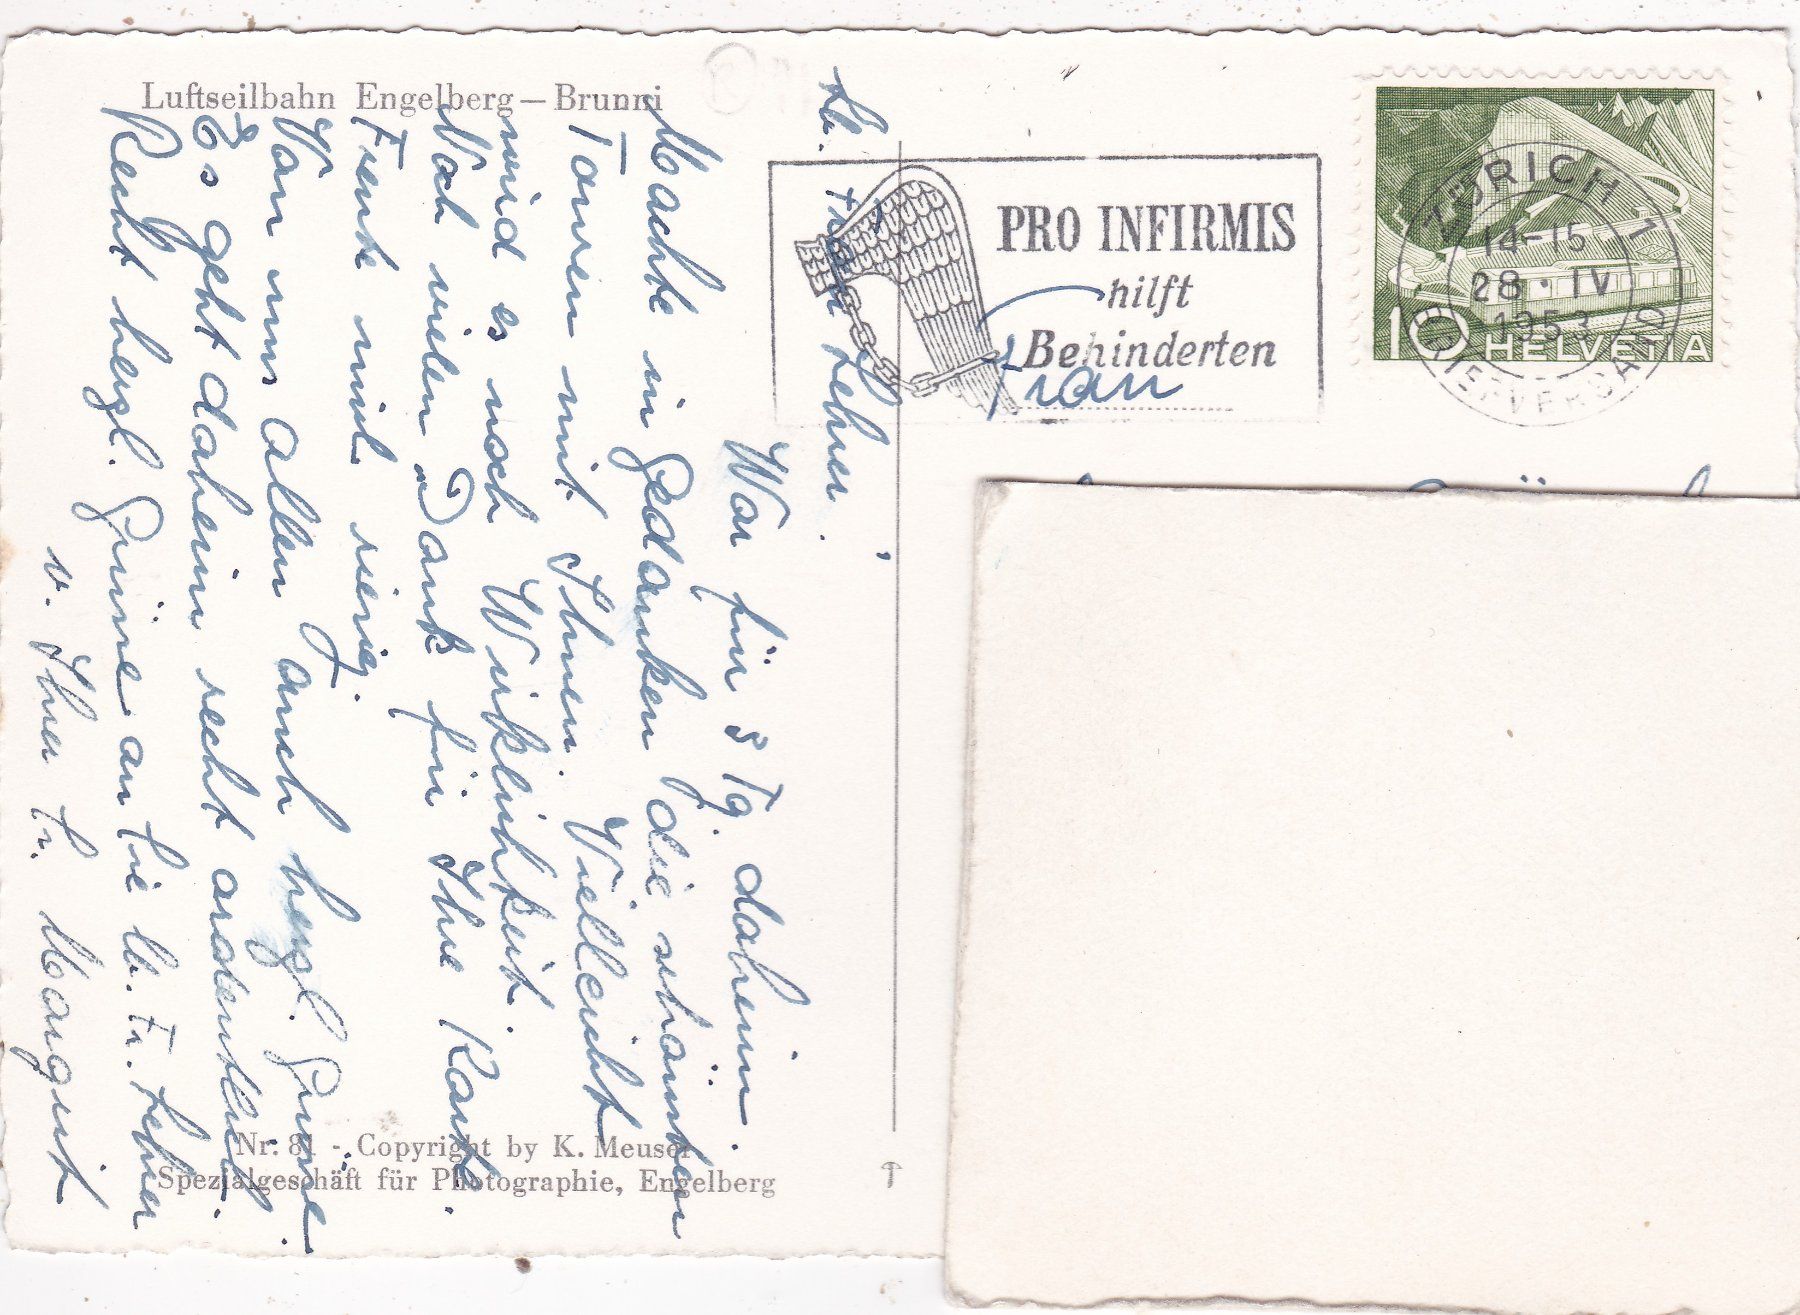 Luftseilbahn Engelberg – Brunni
PRO INFIRMIS
hilft
Behinderten
ZÜRICH 1
14-15
28. IV
1953
10 HELVETIA
Frau
Lb. Frau Fehr.
War für 3 Tg. daheim.
Machte in Gedanken die schönsten
Touren mit Ihnen. Vielleicht
wird es noch Wirklichkeit.
Noch vielen Dank für Ihre Karte.
Freute mich riesig.
Von uns allen auch herzl. Grüsse
Es geht daheim recht ordentlich.
Recht herzl. Grüsse an Sie lb. Fr. Fehr
v. Ihrer Fr. Margrit
Nr. 81 - Copyright by K. Meuser
Spezialgeschäft für Photographie, Engelberg